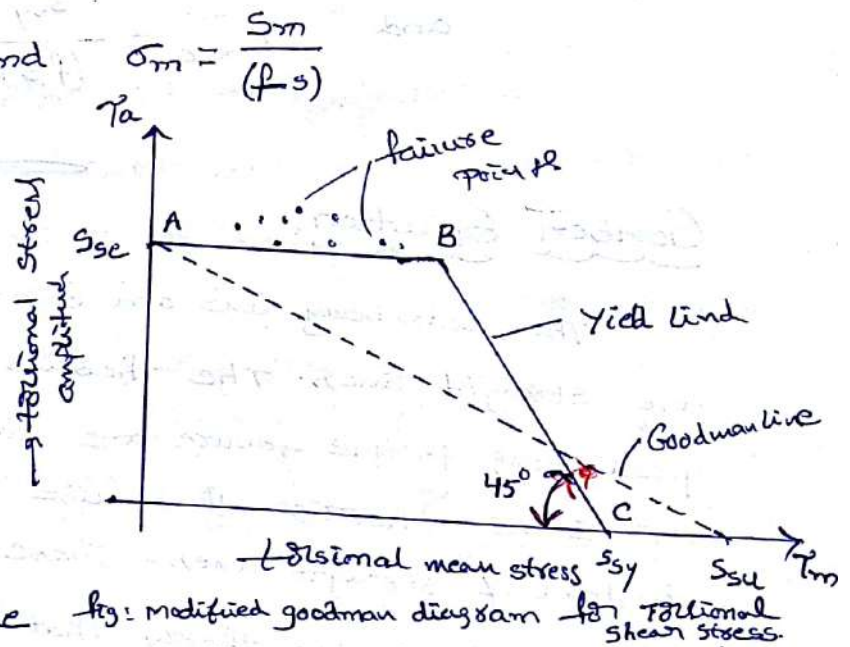 nd. σm = Sm / (fs)
τa
failure
point
A
Sse
B
torsional stress
amplitude
Yield lind
Goodman line
45°
C
torsional mean stress Ssy Ssu τm
e fig: modified goodman diagram for Torsional
shear stress.